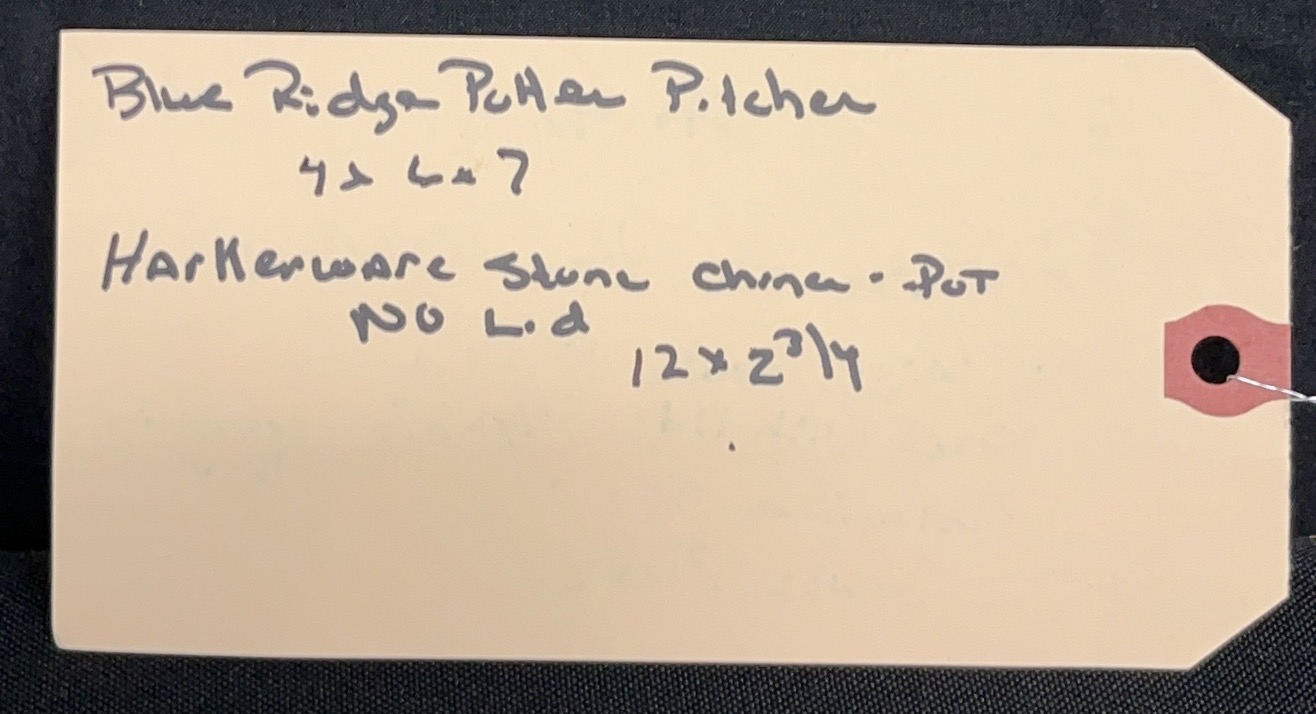 Blue Ridge Potter Pitcher
4 x 6 x 7
Harkerware Stone China - Pot
No Lid
12 x 2 3/4